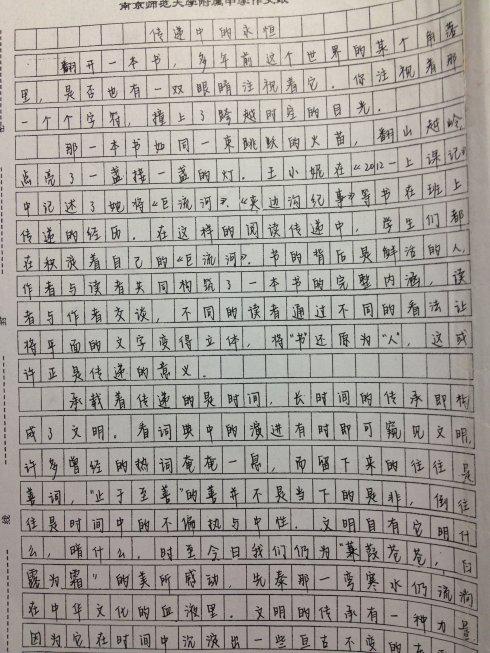 南京师范大学附属中学作文纸
传递中的永恒
翻开一本书，多年前这个世界的某个角落
里，是否也有一双眼睛注视着它。你注视着那
一个个字符，撞上了跨越时空的目光。
那一本书如同一束跳跃的火苗，翻山越岭，
点亮了一盏接一盏的灯。王小妮在《2012—上课记》
中记述了她将《巨流河》、《夹边沟纪事》等书在班上
传递的经历。在这样的阅读传递中，学生们都
在积淀着自己的《巨流河》。书的背后是鲜活的人，
作者与读者共同构筑了一本书的完整内涵，读
者与作者交谈，不同的读者通过不同的看法让
将平面的文字变得立体，将“书”还原为“人”，这或
许正是传递的意义。
承载着传递的是时间，长时间的传承即构
成了文明。看词典中的演进有时即可窥见文明，
许多曾经的热词奄奄一息，而留下来的往往是
善词，“止于至善”的善并不是当下的是非，倒往
往是时间中的不偏执与中性。文明自有它明什
么，暗什么，时至今日我们仍为“蒹葭苍苍，白
露为霜”的美所感动，先秦那一弯寒水仍流淌
在中华文化的血液里。文明的传承有一种力量
因为它在时间中沉淀出一些亘古不变的